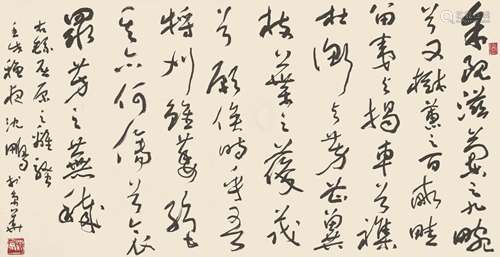 余既滋蘭之九畹
兮又樹蕙之百畝畦
留夷与揭車兮雜
杜衡与芳芷冀
枝葉之葰茂
兮願俟時乎吾
將刈雖萎絕
其亦何傷兮哀
眾芳之蕪穢
右錄屈原之離騷
沈鵬於京華